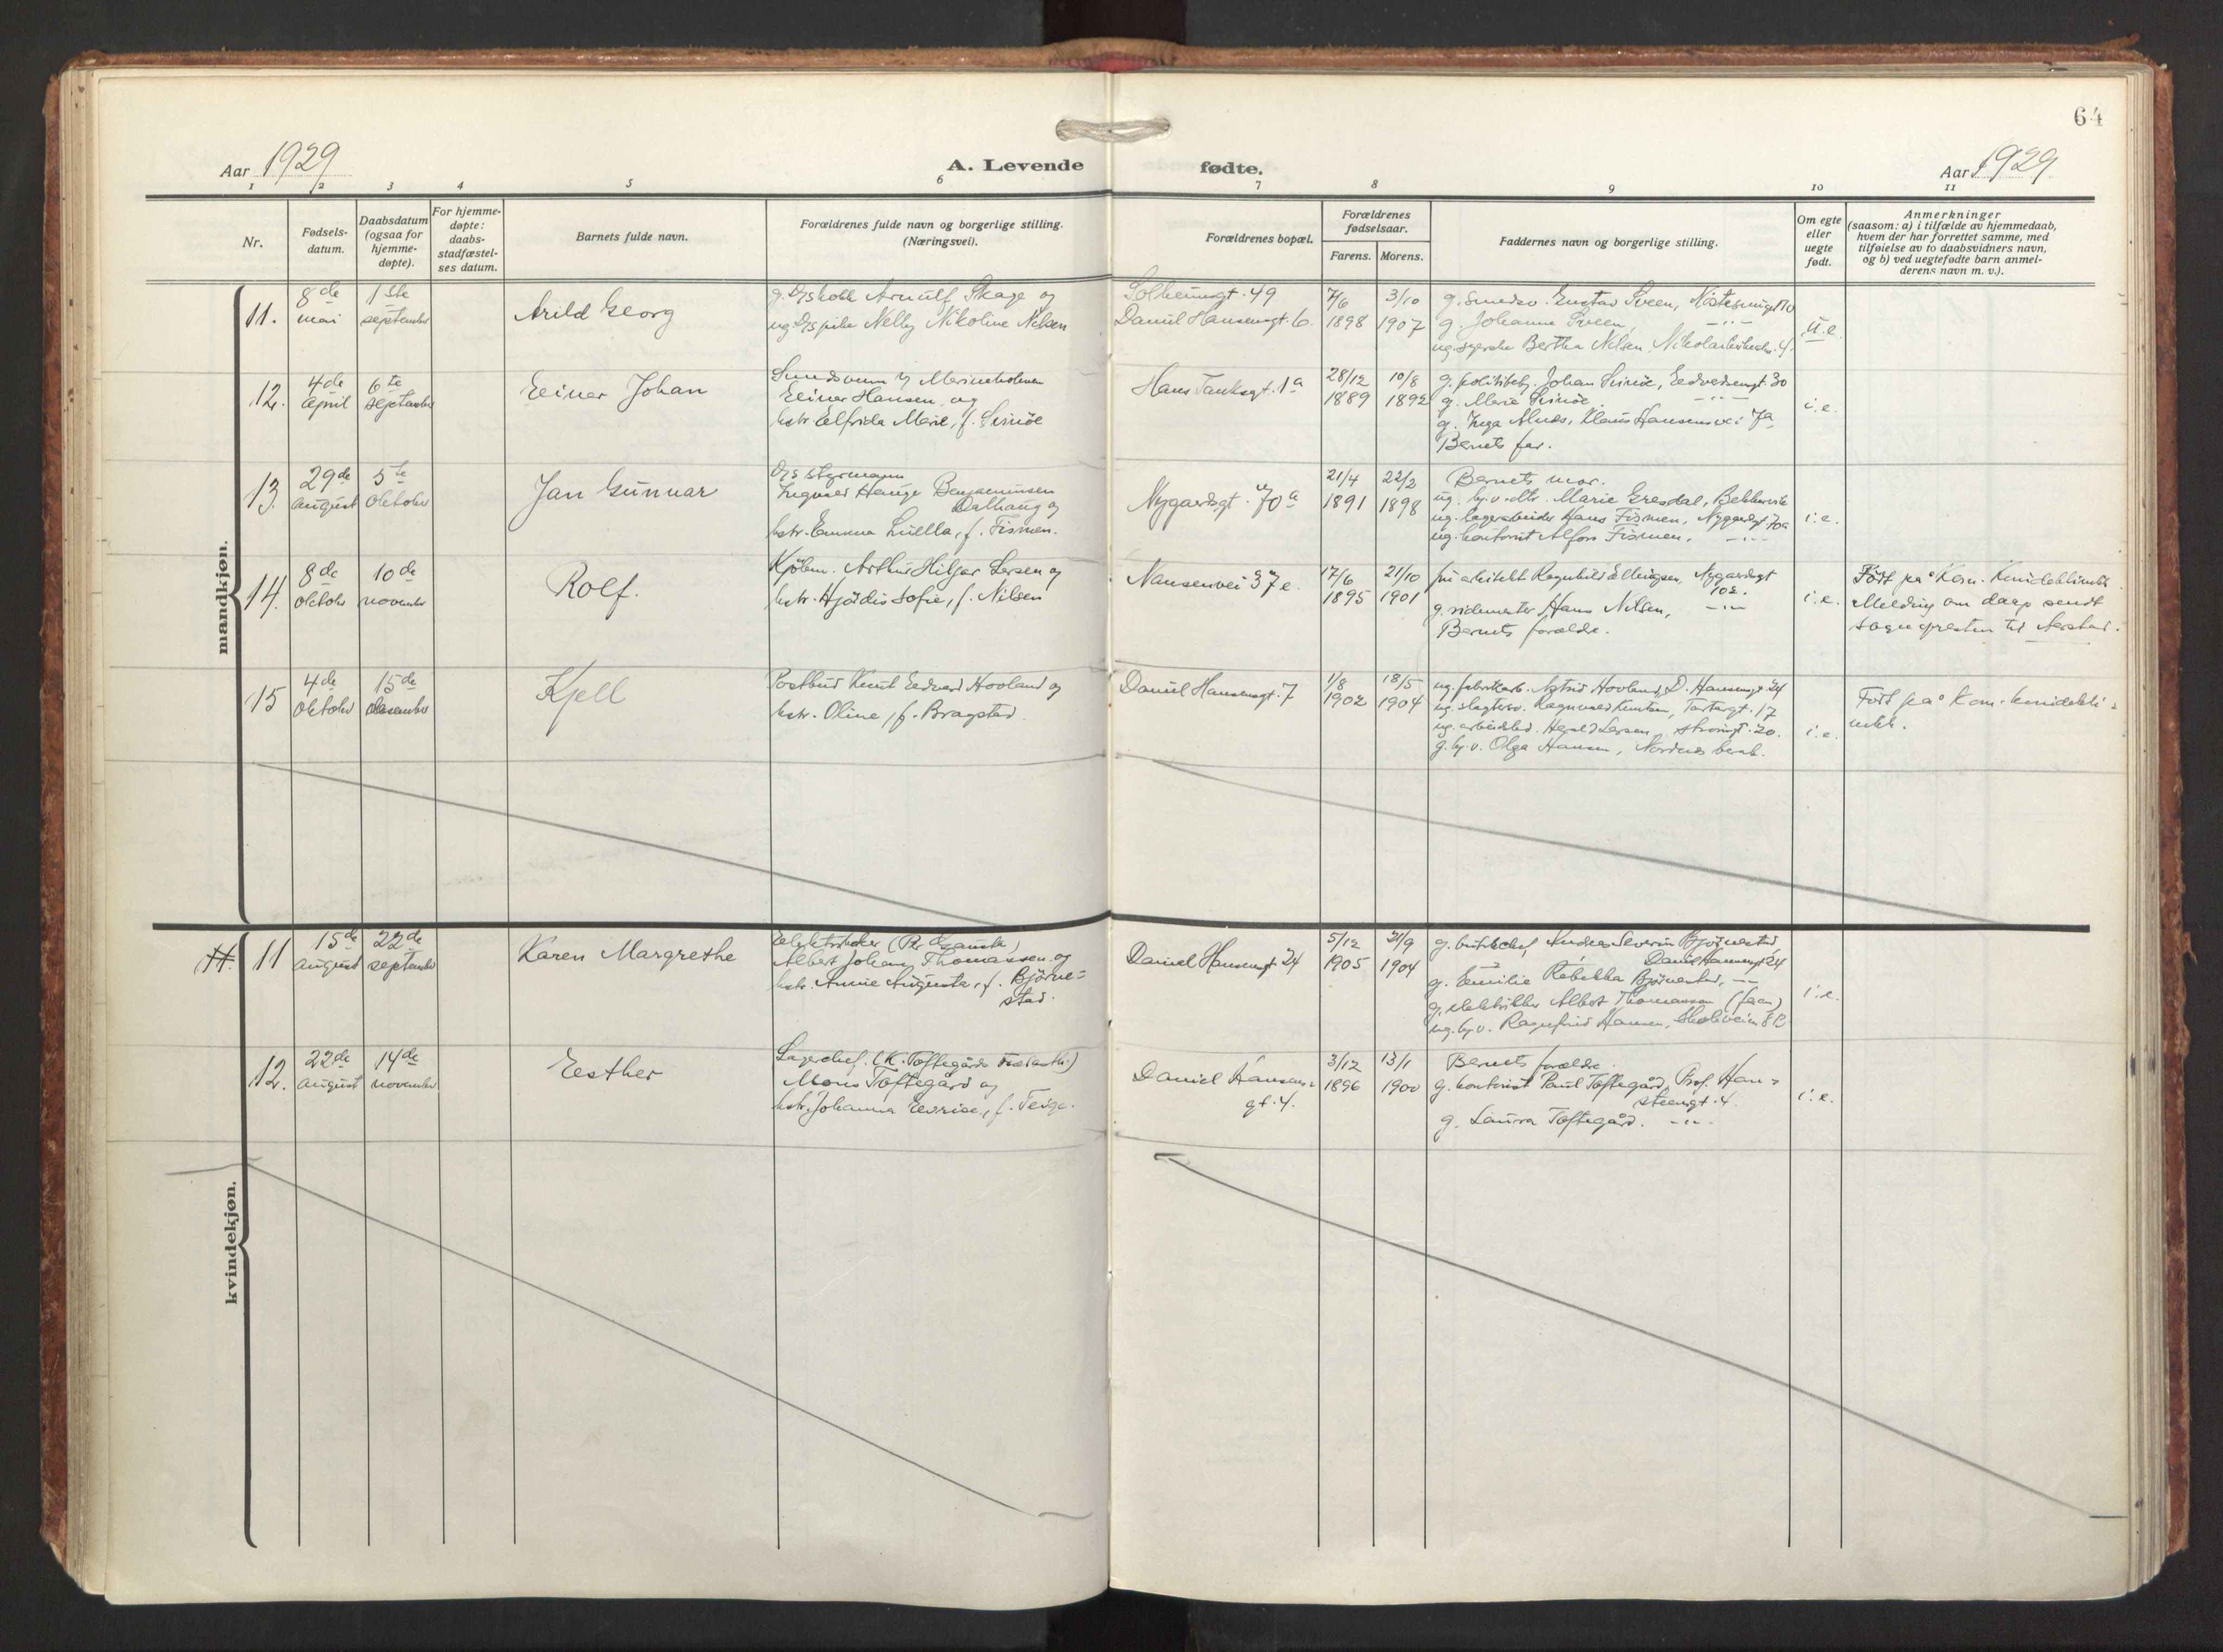 64
Aar 1929
A. Levende
fødte.
Aar 1929
1 2 3 4 5 6 7 8 9 10 11
Nr.
Fødsels-
datum.
Daabsdatum
(ogsaa for
hjemme-
døpte).
For hjemme-
døpte:
daabs-
stadfæstel-
ses datum.
Barnets fulde navn.
Forældrenes fulde navn og borgerlige stilling.
(Næringsvei).
Forældrenes bopæl.
Forældrenes
fødselsaar.
Farens. Morens.
Faddernes navn og borgerlige stilling.
Om egte
eller
uegte
født.
Anmerkninger
(saasom: a) i tilfælde av hjemmedaab,
hvem der har forrettet samme, med
tilføielse av to daabsvidners navn,
og b) ved uegtefødte barn anmel-
derens navn m. v.).
mandkjøn.
11.
8de
mai
1ste
september
Arild Georg
g. D/S kokk Arnulf Skage og
ug. D/S pike Nelly Nikoline Nilsen
Solheimsgt. 49
Daniel Hansensgt. 6.
7/6
1898
3/10
1907
g. smedsv. Gustav Sveen,
g. Johanna Sveen, -"-
ug. syerske Bertha Nilsen, 4.
u.e.
12.
4de
april
6te
september
Einar Johan
Marineholmen
Einar Hansen og
hstr. Elfrida Marie, f. Simöe
Hans Tanksgt. 1a
28/12
1889
10/8
1892
g. politibetj. Johan Simöe, 30
g. Marie Simöe. -"-
g. Inga Alnes, Claus Hansensvei 7a
Barnets far.
i.e.
13.
29de
august
5te
oktober
Jan Gunnar
D/S styrmann
Ingvald Hauge Benjaminsen
Dalhaug og
hstr. Emma Luella, f. Fismen.
Nygaardsgt. 70a
21/4
1891
22/2
1898
Barnets mor.
ug. hj.v. dtr. Marie Gresdal,
ug. lagerarbeider Hans Fismen, Nygaardsgt 70a
ug. kontorist Alfon Fismen, -"-
i.e.
14.
8de
oktober
10de
november
Rolf.
Kjölem. Arthur Hilgar Larsen og
hstr. Hjördis Sofie, f. Nilsen
Nansenvei 37e.
17/6
1895
21/10
1901
fru arkitekt Ragnhild Ellingsen, Nygaardsgt
102.
g. Hans Nilsen, -"-
Barnets forældre.
i.e.
Født på Kom. Kvindeklinikk
Melding om daap sendt
Sognepresten til Aarstad.
15
4de
oktober
15de
desember
Kjell
Postbud Knut Edvard Hovland og
hstr. Oline, f. Bragstad.
Daniel Hansensgt. 7
1/8
1902
18/5
1904
ug. fabrikarb. Astrid Hovland, D. Hansensgt 24
ug. slagtersv. Ragnvald Knutsen, 17
ug. Harald Larsen, 20.
g. hj.v. Olga Hansen,
i.e.
Født på Kom. kvindekli-
nikk.
kvindekjøn.
11
15de
august
22de
september
Karen Margrethe
Albert Johan Thomassen og
hstr. Annie Augusta, f. Björne-
stad.
Daniel Hansensgt. 24
5/12
1905
21/9
1904
g. Anders Severin Björnestad,
Daniel Hansensgt 24
g. Emilie Rebekka Björnestad, -"-
g. elektriker Albert Thomassen (faren)
ug. hj.v. Ragnfrid Hansen, 8 B
i.e.
12.
22de
august
14de
november
Esther
Lagerchef. (K. Toftegårds )
Mons Toftegård og
hstr. Johanna , f. Teige.
Daniel Hansens-
gt. 4.
3/12
1896
13/1
1900
Barnets forældre.
g. kontorist Paul Toftegård, Prof. Han-
steensgt. 4.
g. Laura Toftegård. -"-
i.e.